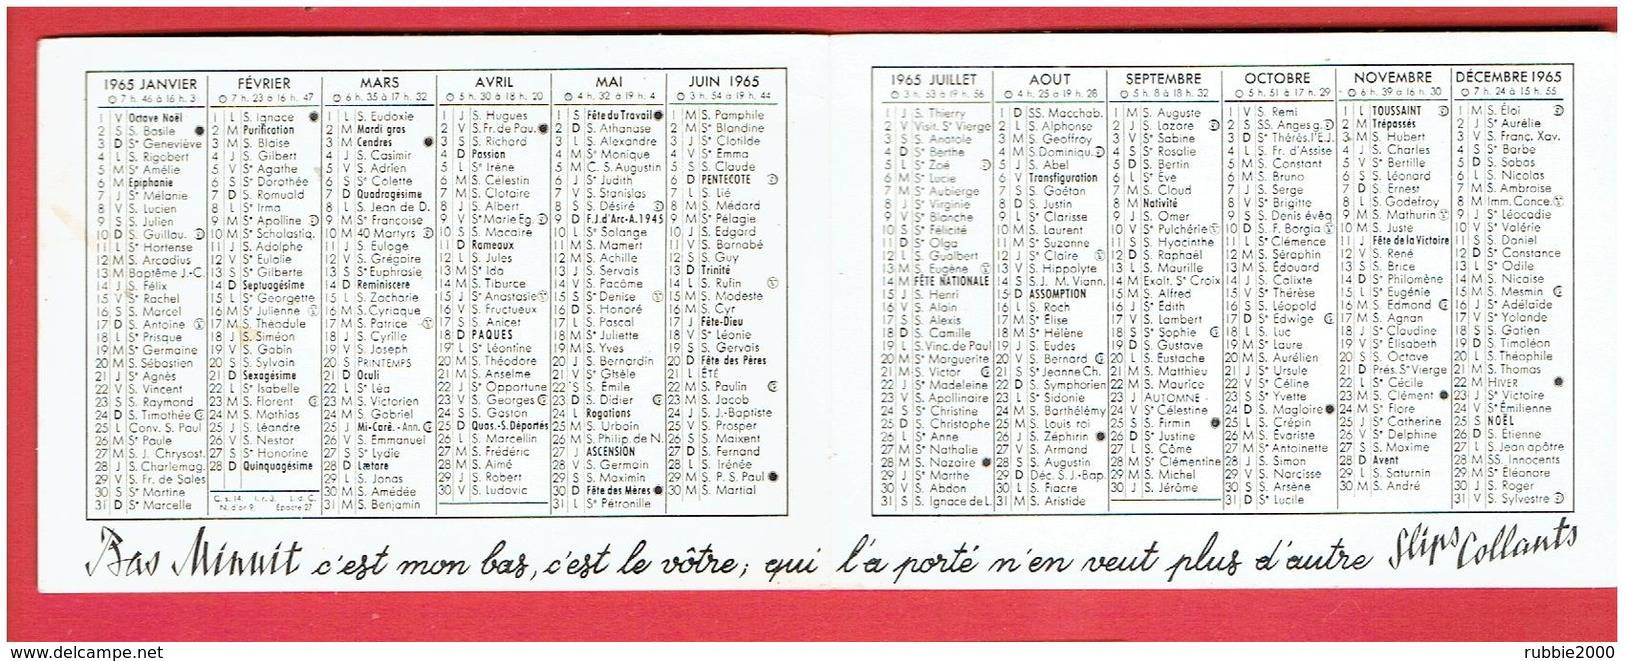 1965 JANVIER
7 h. 46 à 16 h. 3
1 V Octave Noël
2 S S. Basile
3 D Sᵉ Geneviève
4 L S. Rigobert
5 M S. Amélie
6 M Epiphanie
7 J Sᵉ Mélanie
8 V S. Lucien
9 S S. Julien
10 D S. Guillau.
11 L Sᵉ Hortense
12 M S. Arcadius
13 M Baptême J.-C.
14 J S. Félix
15 V Sᵉ Rachel
16 S S. Marcel
17 D S. Antoine
18 L Sᵉ Prisque
19 M Sᵉ Germaine
20 M S. Sébastien
21 J Sᵉ Agnès
22 V S. Vincent
23 S S. Raymond
24 D S. Timothée
25 L Conv. S. Paul
26 M Sᵉ Paule
27 M S. J. Chrysost.
28 J S. Charlemag.
29 V S. Fr. de Sales
30 S Sᵉ Martine
31 D Sᵉ Marcelle
FÉVRIER
7 h. 23 à 16 h. 47
1 L S. Ignace
2 M Purification
3 M S. Blaise
4 J S. Gilbert
5 V Sᵉ Agathe
6 S Sᵉ Dorothée
7 D S. Romuald
8 L Sᵉ Irma
9 M Sᵉ Apolline
10 M Sᵉ Scholastiq.
11 J S. Adolphe
12 V Sᵉ Eulalie
13 S Sᵉ Gilberte
14 D Septuagésime
15 L Sᵉ Georgette
16 M Sᵉ Julienne
17 M S. Théodule
18 J S. Siméon
19 V S. Gabin
20 S S. Sylvain
21 D Sexagésime
22 L Sᵉ Isabelle
23 M S. Florent
24 M S. Mathias
25 J S. Léandre
26 V S. Nestor
27 S Sᵉ Honorine
28 D Quinquagésime
C. s. 14. I. r. 3. L. d. C.
N. d'or 9. Epacte 27
MARS
6 h. 35 à 17 h. 32
1 L S. Eudoxie
2 M Mardi gras
3 M Cendres
4 J S. Casimir
5 V S. Adrien
6 S Sᵉ Colette
7 D Quadragésime
8 L S. Jean de D.
9 M Sᵉ Françoise
10 M 40 Martyrs
11 J S. Euloge
12 V S. Grégoire
13 S Sᵉ Euphrasie
14 D Reminiscere
15 L S. Zacharie
16 M S. Cyriaque
17 M S. Patrice
18 J S. Cyrille
19 V S. Joseph
20 S PRINTEMPS
21 D Oculi
22 L S. Léa
23 M S. Victorien
24 M S. Gabriel
25 J Mi-Carê.-Ann.
26 V S. Emmanuel
27 S Sᵉ Lydie
28 D Lætare
29 L S. Jonas
30 M S. Amédée
31 M S. Benjamin
AVRIL
5 h. 30 à 18 h. 20
1 J S. Hugues
2 V S. Fr. de Pau.
3 S S. Richard
4 D Passion
5 L Sᵉ Irène
6 M S. Célestin
7 M S. Clotaire
8 J S. Albert
9 V Sᵉ Marie Eg.
10 S S. Macaire
11 D Rameaux
12 L S. Jules
13 M Sᵉ Ida
14 M S. Tiburce
15 J Sᵉ Anastasie
16 V S. Fructueux
17 S S. Anicet
18 D PAQUES
19 L Sᵉ Léontine
20 M S. Théodore
21 M S. Anselme
22 J Sᵉ Opportune
23 V S. Georges
24 S S. Gaston
25 D Quas.-S. Déportés
26 L S. Marcellin
27 M S. Frédéric
28 M S. Aimé
29 J S. Robert
30 V S. Ludovic
MAI
4 h. 32 à 19 h. 4
1 S Fête du Travail
2 D S. Athanase
3 L S. Alexandre
4 M Sᵉ Monique
5 M C. S. Augustin
6 J Sᵉ Judith
7 V S. Stanislas
8 S S. Désiré
9 D F.J.d'Arc-A.1945
10 L Sᵉ Solange
11 M S. Mamert
12 M S. Achille
13 J S. Servais
14 V S. Pacôme
15 S Sᵉ Denise
16 D S. Honoré
17 L S. Pascal
18 M Sᵉ Juliette
19 M S. Yves
20 J S. Bernardin
21 V Sᵉ Gisèle
22 S S. Émile
23 D S. Didier
24 L Rogations
25 M S. Urbain
26 M S. Philip. de N.
27 J ASCENSION
28 V S. Germain
29 S S. Maximin
30 D Fête des Mères
31 L Sᵉ Pétronille
JUIN 1965
3 h. 54 à 19 h. 44
1 M S. Pamphile
2 M Sᵉ Blandine
3 J Sᵉ Clotilde
4 V Sᵉ Emma
5 S S. Claude
6 D PENTECOTE
7 L S. Lié
8 M S. Médard
9 M Sᵉ Pélagie
10 J S. Edgard
11 V S. Barnabé
12 S S. Guy
13 D Trinité
14 L S. Rufin
15 M S. Modeste
16 M S. Cyr
17 J Fête-Dieu
18 V Sᵉ Léonie
19 S S. Gervais
20 D Fête des Pères
21 L ÉTÉ
22 M S. Paulin
23 M S. Jacob
24 J S. J.-Baptiste
25 V S. Prosper
26 S S. Maixent
27 D S. Fernand
28 L S. Irénée
29 M S. P. S. Paul
30 M S. Martial
1965 JUILLET
3 h. 53 à 19 h. 56
1 J S. Thierry
2 V Visit. Sᵉ Vierge
3 S S. Anatole
4 D Sᵉ Berthe
5 L Sᵉ Zoé
6 M Sᵉ Lucie
7 M Sᵉ Aubierge
8 J Sᵉ Virginie
9 V Sᵉ Blanche
10 S Sᵉ Félicité
11 D Sᵉ Olga
12 L S. Gualbert
13 M S. Eugène
14 M FÊTE NATIONALE
15 J S. Henri
16 V S. Alain
17 S S. Alexis
18 D S. Camille
19 L S. Vinc. de Paul
20 M Sᵉ Marguerite
21 M S. Victor
22 J Sᵉ Madeleine
23 V S. Apollinaire
24 S Sᵉ Christine
25 D S. Christophe
26 L Sᵉ Anne
27 M Sᵉ Nathalie
28 M S. Nazaire
29 J Sᵉ Marthe
30 V S. Abdon
31 S S. Ignace de L.
AOUT
4 h. 25 à 19 h. 28
1 D SS. Macchab.
2 L S. Alphonse
3 M S. Geoffroy
4 M S. Dominiqu.
5 J S. Abel
6 V Transfiguration
7 S S. Gaëtan
8 D S. Justin
9 L Sᵉ Clarisse
10 M S. Laurent
11 M Sᵉ Suzanne
12 J Sᵉ Claire
13 V S. Hippolyte
14 S S.J. M. Viann.
15 D ASSOMPTION
16 L S. Roch
17 M Sᵉ Élise
18 M Sᵉ Hélène
19 J S. Eudes
20 V S. Bernard
21 S Sᵉ Jeanne Ch.
22 D S. Symphorien
23 L Sᵉ Sidonie
24 M S. Barthélémy
25 M S. Louis roi
26 J S. Zéphirin
27 V S. Armand
28 S S. Augustin
29 D Déc. S.J.-Bap.
30 L S. Fiacre
31 M S. Aristide
SEPTEMBRE
5 h. 8 à 18 h. 32
1 M S. Auguste
2 J S. Lazare
3 V Sᵉ Sabine
4 S Sᵉ Rosalie
5 D S. Bertin
6 L Sᵉ Ève
7 M S. Cloud
8 M Nativité
9 J S. Omer
10 V Sᵉ Pulchérie
11 S S. Hyacinthe
12 D S. Raphaël
13 L S. Maurille
14 M Exalt. Sᵉ Croix
15 M S. Alfred
16 J Sᵉ Édith
17 V S. Lambert
18 S Sᵉ Sophie
19 D S. Gustave
20 L S. Eustache
21 M S. Matthieu
22 M S. Maurice
23 J AUTOMNE
24 V Sᵉ Célestine
25 S S. Firmin
26 D Sᵉ Justine
27 L S. Côme
28 M Sᵉ Clémentine
29 M S. Michel
30 J S. Jérôme
OCTOBRE
5 h. 51 à 17 h. 29
1 V S. Remi
2 S SS. Anges g.
3 D Sᵉ Thérès. l'E.J.
4 L S. Fr. d'Assise
5 M S. Constant
6 M S. Bruno
7 J S. Serge
8 V Sᵉ Brigitte
9 S S. Denis évêq.
10 D S. F. Borgia
11 L Sᵉ Clémence
12 M S. Séraphin
13 M S. Édouard
14 J S. Calixte
15 V Sᵉ Thérèse
16 S S. Léopold
17 D Sᵉ Edwige
18 L S. Luc
19 M Sᵉ Laure
20 M S. Aurélien
21 J Sᵉ Ursule
22 V Sᵉ Céline
23 S Sᵉ Yvette
24 D S. Magloire
25 L S. Crépin
26 M S. Évariste
27 M Sᵉ Antoinette
28 J S. Simon
29 V S. Narcisse
30 S S. Arsène
31 D Sᵉ Lucile
NOVEMBRE
6 h. 39 à 16 h. 30
1 L TOUSSAINT
2 M Trépassés
3 M S. Hubert
4 J S. Charles
5 V Sᵉ Bertille
6 S S. Léonard
7 D S. Ernest
8 L S. Godefroy
9 M S. Mathurin
10 M S. Juste
11 J Fête de la Victoire
12 V S. René
13 S S. Brice
14 D Sᵉ Philomène
15 L S. Eugénie
16 M S. Edmond
17 M S. Agnan
18 J Sᵉ Claudine
19 V Sᵉ Élisabeth
20 S S. Octave
21 D Prés. Sᵉ Vierge
22 L Sᵉ Cécile
23 M S. Clément
24 M Sᵉ Flore
25 J Sᵉ Catherine
26 V Sᵉ Delphine
27 S S. Maxime
28 D Avent
29 L S. Saturnin
30 M S. André
DÉCEMBRE 1965
7 h. 24 à 15 h. 55
1 M S. Éloi
2 J Sᵉ Aurélie
3 V S. Franç. Xav.
4 S Sᵉ Barbe
5 D S. Sabas
6 L S. Nicolas
7 M S. Ambroise
8 M Imm. Conce.
9 J S. Léocadie
10 V Sᵉ Valérie
11 S S. Daniel
12 D Sᵉ Constance
13 L Sᵉ Odile
14 M S. Nicaise
15 M S. Mesmin
16 J Sᵉ Adélaïde
17 V Sᵉ Yolande
18 S S. Gatien
19 D S. Timoléon
20 L S. Théophile
21 M S. Thomas
22 M HIVER
23 J Sᵉ Victoire
24 V Sᵉ Émilienne
25 S NOËL
26 D S. Etienne
27 L S. Jean apôtre
28 M SS. Innocents
29 M Sᵉ Éléonore
30 J S. Roger
31 V S. Sylvestre
Bas Minuit c'est mon bas, c'est le vôtre; qui l'a porté n'en veut plus d'autre Slips Collants
delcampe.net
rubbie2000